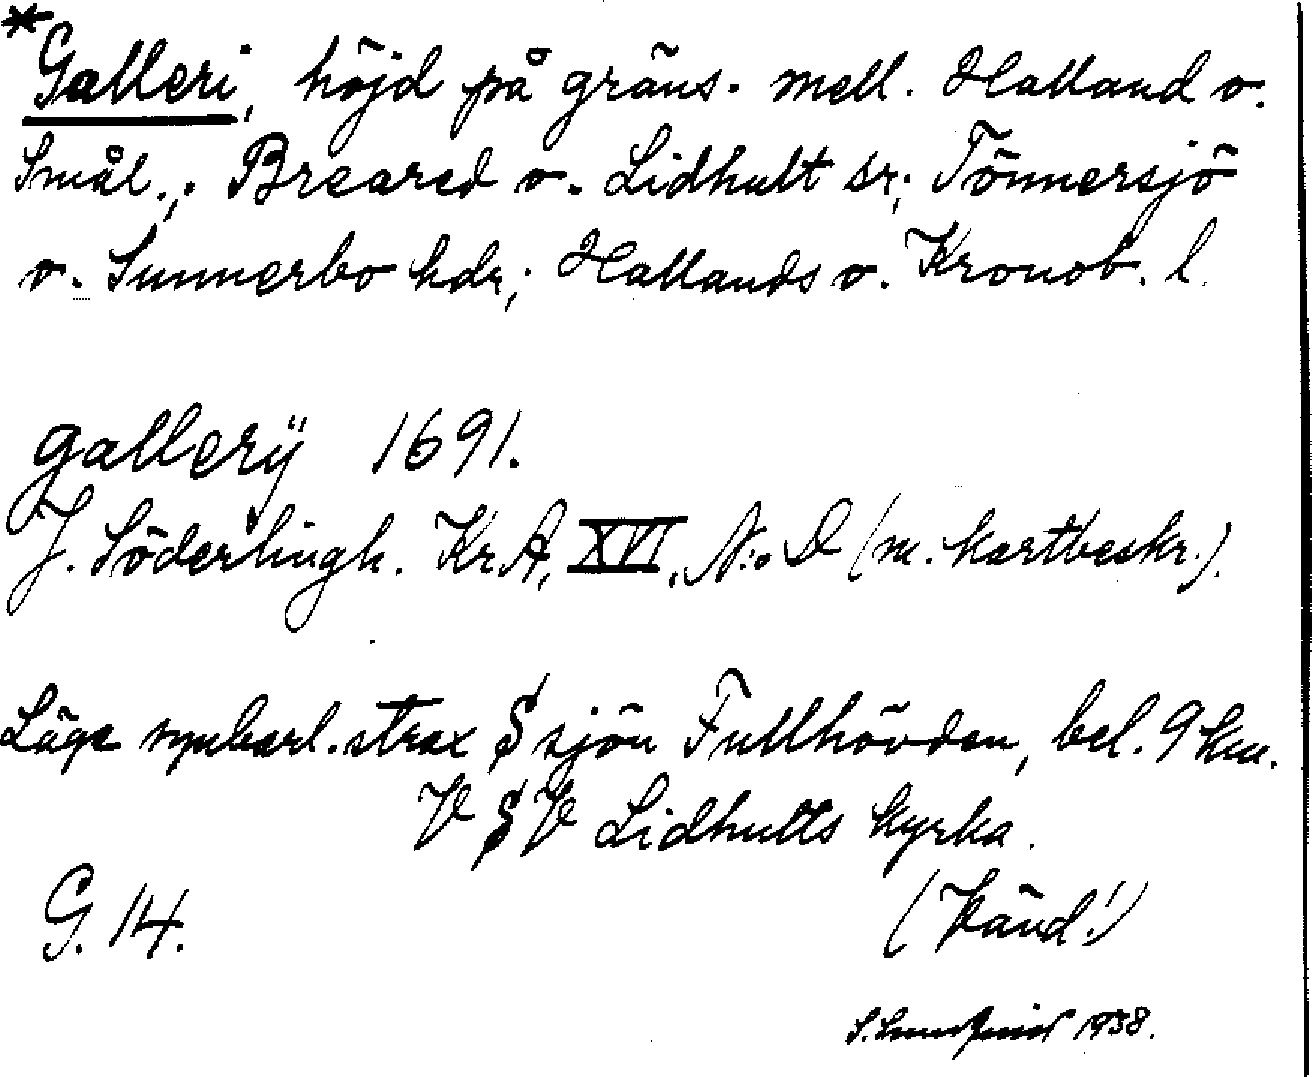 *Galleri, höjd på gräns. mell. Halland o.
Smål.; Breared o. Lidhult sr; Tönnersjö
o. Sunnerbo hdr; Hallands o. Kronob. l.
gallerÿ 1691.
J. Söderlingh. Kr.A, XVI, N:o D (m. kartbeskr.).
Läge synbarl. strax S sjön Fullhövden, bel. 9 km.
V S V Lidhults kyrka.
G. 14.
(Vänd!)
1938.